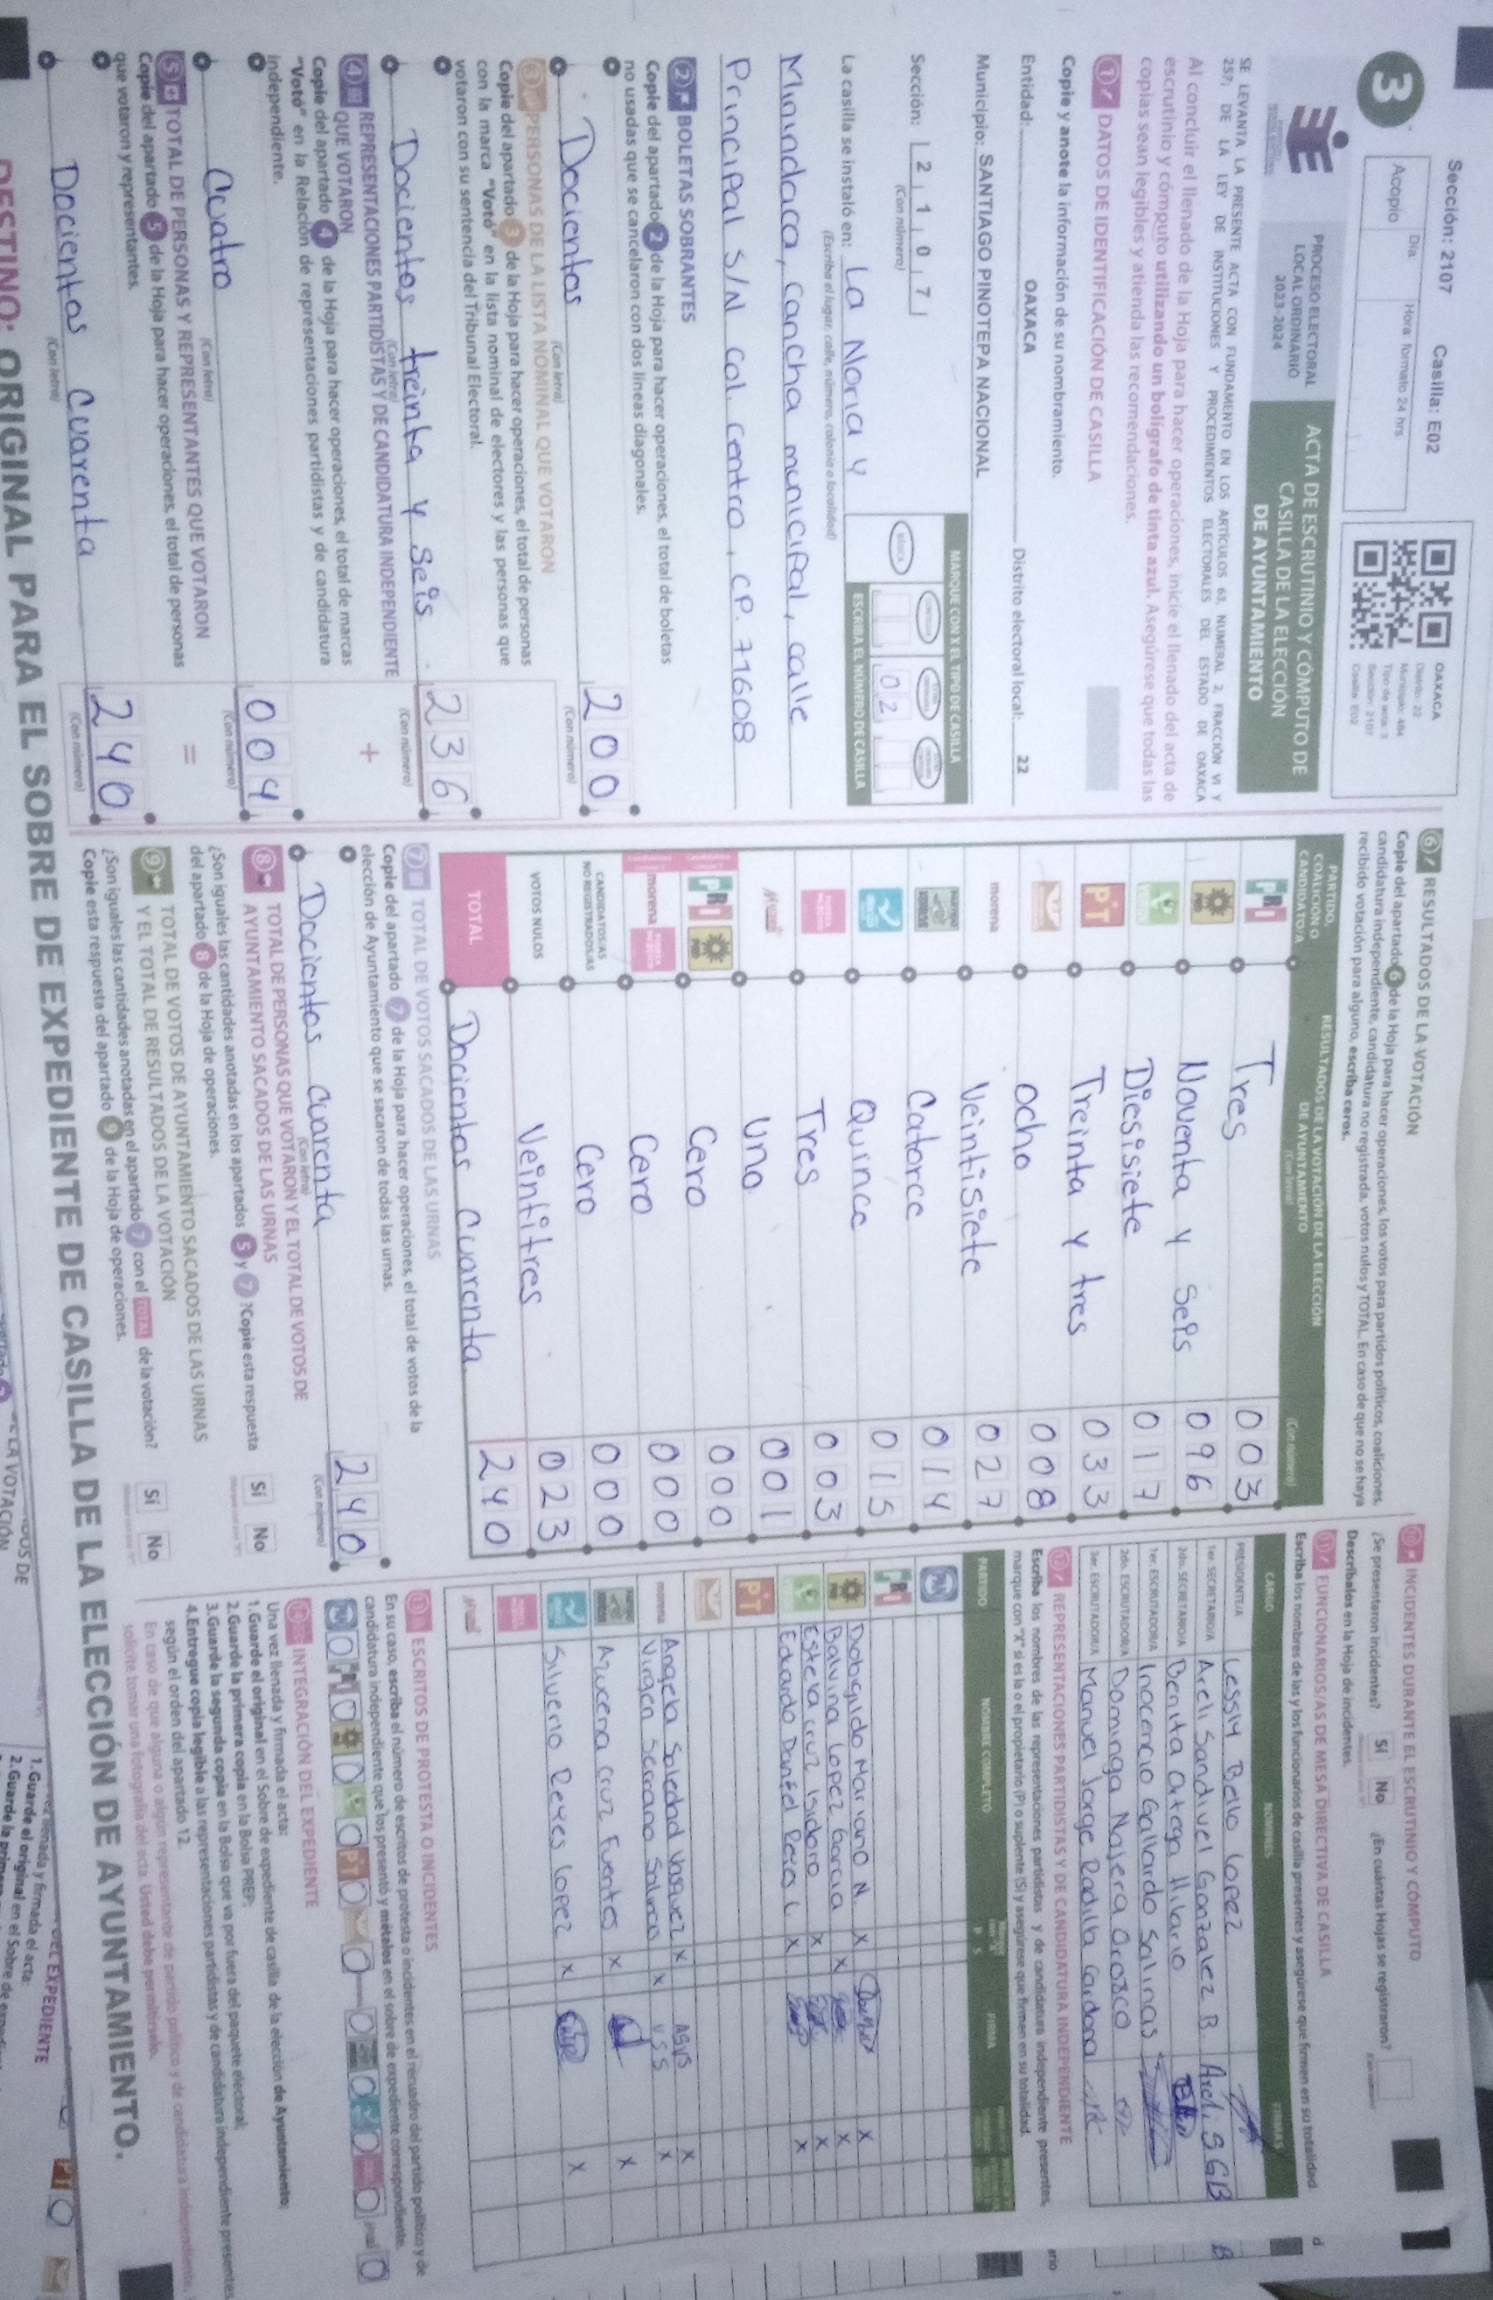 Sección: 2107 Casilla: E02
3
Acopio
Día:
Hora: formato 24 hrs.
OAXACA
Distrito: 22
Municipio: 484
Tipo de acta: 3
Sección: 2107
Casilla: E02
PROCESO ELECTORAL
LOCAL ORDINARIO
2023-2024
ACTA DE ESCRUTINIO Y CÓMPUTO DE
CASILLA DE LA ELECCIÓN
DE AYUNTAMIENTO
SE LEVANTA LA PRESENTE ACTA CON FUNDAMENTO EN LOS ARTÍCULOS 63, NUMERAL 2, FRACCIÓN VI Y
257; DE LA LEY DE INSTITUCIONES Y PROCEDIMIENTOS ELECTORALES DEL ESTADO DE OAXACA
Al concluir el llenado de la Hoja para hacer operaciones, inicie el llenado del acta de
escrutinio y cómputo utilizando un bolígrafo de tinta azul. Asegúrese que todas las
copias sean legibles y atienda las recomendaciones.
1 DATOS DE IDENTIFICACIÓN DE CASILLA
Copie y anote la información de su nombramiento.
Entidad: OAXACA Distrito electoral local: 22
Municipio: SANTIAGO PINOTEPA NACIONAL
Sección: 2107
(Con número)
MARQUE CON X EL TIPO DE CASILLA
BÁSICA
02
ESCRIBA EL NÚMERO DE CASILLA
La casilla se instaló en: La Noria y
(Escriba el lugar, calle, número, colonia o localidad)
Minindaca, cancha municipal, calle
Principal S/N col centro, CP. 71608
2 BOLETAS SOBRANTES
Copie del apartado 2 de la Hoja para hacer operaciones, el total de boletas
no usadas que se cancelaron con dos líneas diagonales.
Docientos 200
(Con letra) (Con número)
3 PERSONAS DE LA LISTA NOMINAL QUE VOTARON
Copie del apartado 3 de la Hoja para hacer operaciones, el total de personas
con la marca "Votó" en la lista nominal de electores y las personas que
votaron con su sentencia del Tribunal Electoral.
Docientos treinta y seis 236
(Con letra) (Con número)
4 REPRESENTACIONES PARTIDISTAS Y DE CANDIDATURA INDEPENDIENTE
QUE VOTARON +
Copie del apartado 4 de la Hoja para hacer operaciones, el total de marcas
"Votó" en la Relación de representaciones partidistas y de candidatura
independiente.
Cuatro 004
(Con letra) (Con número)
5 TOTAL DE PERSONAS Y REPRESENTANTES QUE VOTARON =
Copie del apartado 5 de la Hoja para hacer operaciones, el total de personas
que votaron y representantes.
Docientos Cuarenta 240
(Con letra) (Con número)
6 RESULTADOS DE LA VOTACIÓN
Copie del apartado 6 de la Hoja para hacer operaciones, los votos para partidos políticos, coaliciones,
candidatura independiente, candidatura no registrada, votos nulos y TOTAL. En caso de que no se haya
recibido votación para alguno, escriba ceros.
PARTIDO,
COALICIÓN O
CANDIDATO/A
RESULTADOS DE LA VOTACIÓN DE LA ELECCIÓN
DE AYUNTAMIENTO
(Con letra) (Con número)
PRI Tres 003
PRD Noventa y Seis 096
Diesisiete 017
PT Treinta y tres 033
Ocho 008
morena Veintisiete 027
Catorce 014
Quince 015
Tres 003
Una 001
PRI PRD Cero 000
morena Cero 000
CANDIDATOS/AS
NO REGISTRADOS/AS Cero 000
VOTOS NULOS Veintitres 023
TOTAL Docientos Cuarenta 240
7 TOTAL DE VOTOS SACADOS DE LAS URNAS
Copie del apartado 7 de la Hoja para hacer operaciones, el total de votos de la
elección de Ayuntamiento que se sacaron de todas las urnas.
Docientos cuarenta 240
(Con letra) (Con número)
8 TOTAL DE PERSONAS QUE VOTARON Y EL TOTAL DE VOTOS DE
AYUNTAMIENTO SACADOS DE LAS URNAS
¿Son iguales las cantidades anotadas en los apartados 5 y 7 ?Copie esta respuesta
del apartado 8 de la Hoja de operaciones.
Sí No
9 TOTAL DE VOTOS DE AYUNTAMIENTO SACADOS DE LAS URNAS
Y EL TOTAL DE RESULTADOS DE LA VOTACIÓN
¿Son iguales las cantidades anotadas en el apartado 7 con el TOTAL de la votación?
Copie esta respuesta del apartado 9 de la Hoja de operaciones.
Sí No
10 INCIDENTES DURANTE EL ESCRUTINIO Y CÓMPUTO
¿Se presentaron incidentes? Sí No ¿En cuántas Hojas se registraron?
Descríbalos en la Hoja de incidentes.
11 FUNCIONARIOS/AS DE MESA DIRECTIVA DE CASILLA
Escriba los nombres de las y los funcionarios de casilla presentes y asegúrese que firmen en su totalidad.
CARGO NOMBRES FIRMAS
PRESIDENTE/A Lessly Bello Lopez
1er. SECRETARIO/A Areli Sandivel Gonzalez B. Areli SGB
2do. SECRETARIO/A Benita Ortega Hilario
1er. ESCRUTADOR/A Inocencio Gallardo Salinas
2do. ESCRUTADOR/A Dominga Najera Orosco
3er. ESCRUTADOR/A Manuel Jorge Radilla Cardona
12 REPRESENTACIONES PARTIDISTAS Y DE CANDIDATURA INDEPENDIENTE
Escriba los nombres de las representaciones partidistas y de candidatura independiente presentes,
marque con "X" si es la o el propietario (P) o suplente (S) y asegúrese que firmen en su totalidad.
PARTIDO NOMBRE COMPLETO P S FIRMA
PAN
PRI Dobgildo Mariano N. X X
PRD Balvina Lopez Garcia X X
Estela cruz Isidoro X X
Eduardo Daniel Reies L X X
PT
morena Angela Soledad Vasquez X ASVS X
Virgen Serrano Salinas X VSS X
Azucena Cruz Fuentes X X
Silverio Reyes Lopez X X
13 ESCRITOS DE PROTESTA O INCIDENTES
En su caso, escriba el número de escritos de protesta o incidentes en el recuadro del partido político y de
candidatura independiente que los presentó y métalos en el sobre de expediente correspondiente.
14 INTEGRACIÓN DEL EXPEDIENTE
Una vez llenada y firmada el acta:
1.Guarde el original en el Sobre de expediente de casilla de la elección de Ayuntamiento;
2.Guarde la primera copia en la Bolsa PREP;
3.Guarde la segunda copia en la Bolsa que va por fuera del paquete electoral;
4.Entregue copia legible a las representaciones partidistas y de candidatura independiente presentes,
según el orden del apartado 12.
En caso de que alguna o algún representante de partido político y de candidatura independiente,
solicite tomar una fotografía del acta. Usted debe permitírselo.
DESTINO: ORIGINAL PARA EL SOBRE DE EXPEDIENTE DE CASILLA DE LA ELECCIÓN DE AYUNTAMIENTO.
DEL EXPEDIENTE
llenada y firmada el acta:
1. Guarde el original en el Sobre de
2. Guarde la